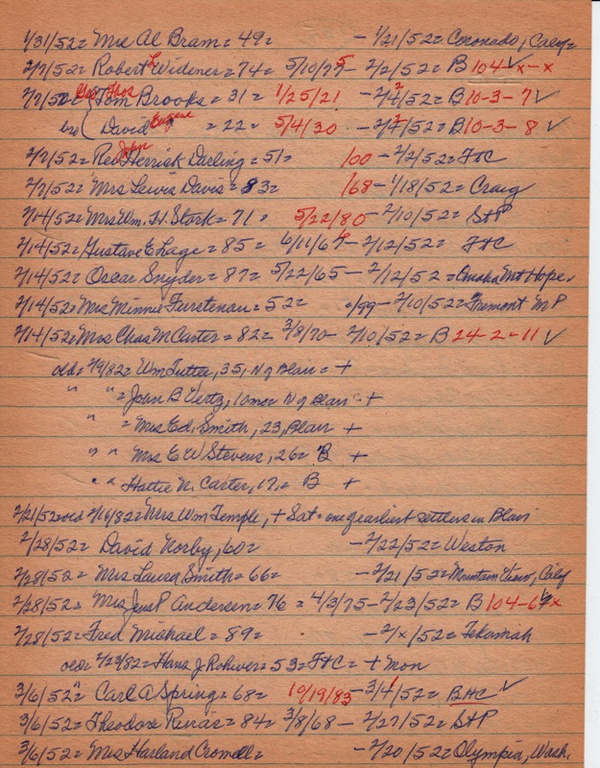 1/31/52= Mrs Al Bram= 49= -1/21/52= Coronado, Calif=
2/7/52= Robert L Widener= 74= 5/10/775 -2/2/52= B 104 x-x
2/7/52= Thos Tom Brooks= 31= 1/25/21 -2/2/52= B10-3-7 ✓
bro { David Eugene = 22= 5/4/30 -2/2/52= B10-3-8 ✓
2/7/52= Rev John Herrick Darling= 51= /00 -2/2/52= Ft C
2/7/52= Mrs Lewis Davis= 83= /68 -1/18/52= Craig
2/14/52= Mrs Wm. H. Stork= 71= 5/22/80 -2/10/52= StP
2/14/52= Gustave E Lage= 85= 6/11/69 -2/12/52= Ft C
2/14/52= Oscar Snyder= 87= 5/22/65 -2/12/52= Omaha Mt Hope
2/14/52= Mrs Minnie Furstenau= 52= ·/99 -2/10/52= Fremont M P
2/14/52= Mrs Chas M Carter= 82= 3/8/70 -2/10/52= B 24-2-11 ✓
old= 2/9/82= Wm Tuttle, 35, N of Blair= +
" " = Joan B Wertz, 10mos N of Blair +
" = Mrs Ed. Smith, 23, Blair +
" " Mrs E W Stevens, 26= B +
" " Hattie N. Carter, 17,= B +
2/21/52= old 2/16/82= Mrs Wm Temple, + Sat= one of earliest settlers in Blair
2/28/52= David Norby, 60= -2/22/52= Weston
2/28/52= Mrs Laura Smith= 66= -2/21/52= Mountain View, Calif
2/28/52= Mrs Jens P Andersen= 76= 4/3/75 -2/23/52= B 104-6-x
2/28/52= Fred Michael= 89= -2/x/52= Tekamah
old= 2/23/82= Hans J Rohwer= 53= Ft C= + Mon
3/6/52= Carl A Spring= 68= 10/19/83 -3/1/52= BHC ✓
3/6/52= Theodore = 84= 3/8/68 -2/27/52= StP
3/6/52= Mrs Harland Cromell= -2/20/52= Olympia, Wash.